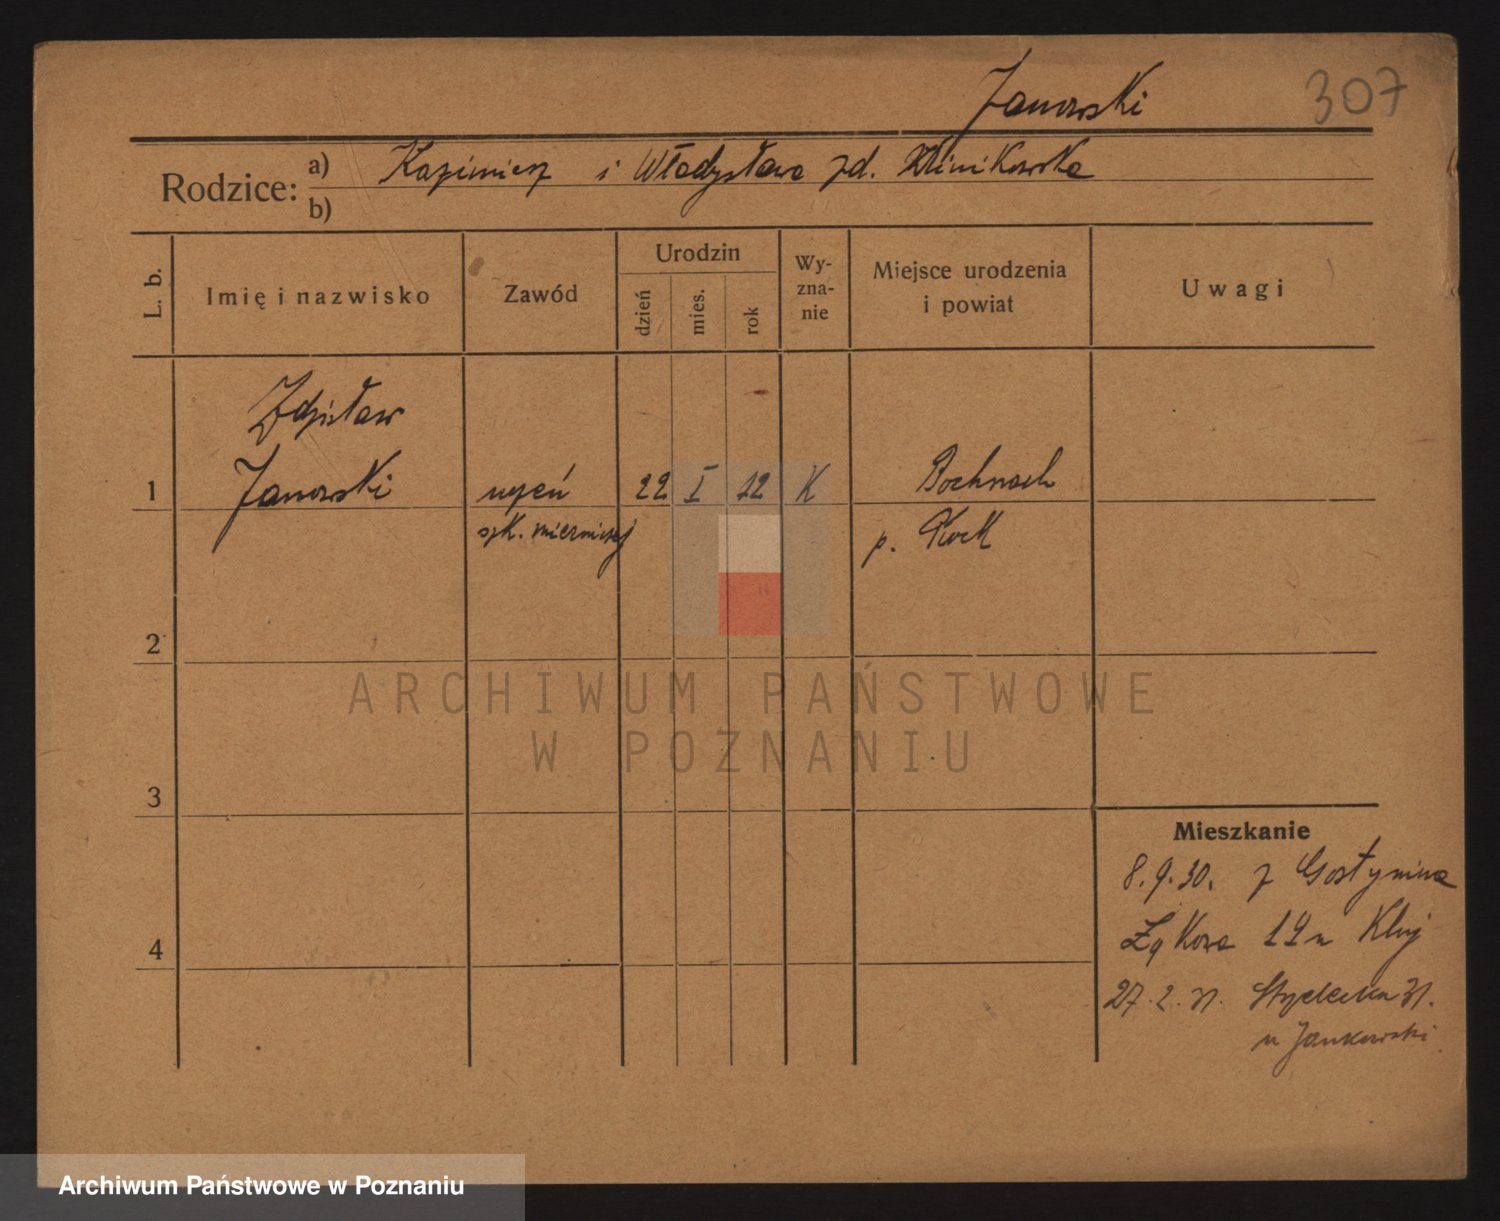 Janowski
307
Rodzice:
a) Kazimierz i Władysława zd. Klinikowska
b)
L. b.
Imię i nazwisko
Zawód
Urodzin
dzień
mies.
rok
Wy-
zna-
nie
Miejsce urodzenia
i powiat
Uwagi
Zdzisław
1 Janowski uczeń 22 I 12 K
szk. mierniczej p. Płock
2
ARCHIWUM PAŃSTWOWE
W POZNANIU
3
Mieszkanie
8.9.30. z Gostynina
Łąkowa
4
27.2.31. 31.
u Jankowski
Archiwum Państwowe w Poznaniu